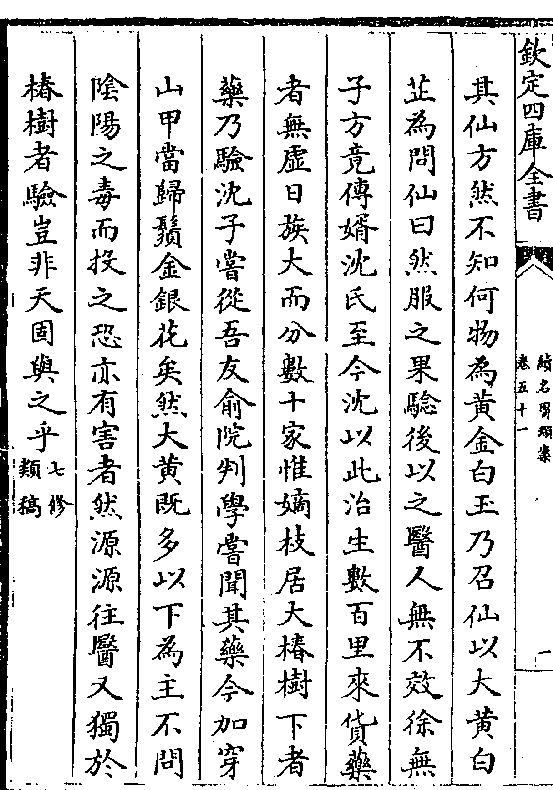 欽定四庫全書
續名醫類案
卷五十一
一
其仙方然不知何物為黃金白玉乃召仙以大黃白
芷為問仙曰然服之果驗後以之醫人無不效徐無
子方竟傳婿沈氏至今沈以此治生數百里來貨藥
者無虛日族大而分數十家惟嫡枝居大椿樹下者
藥乃驗沈子嘗從吾友俞院判學嘗聞其藥今加穿
山甲當歸鬚金銀花矣然大黃既多以下為主不問
陰陽之毒而投之恐亦有害者然源源往醫又獨於
椿樹者驗豈非天固與之乎七修類稿